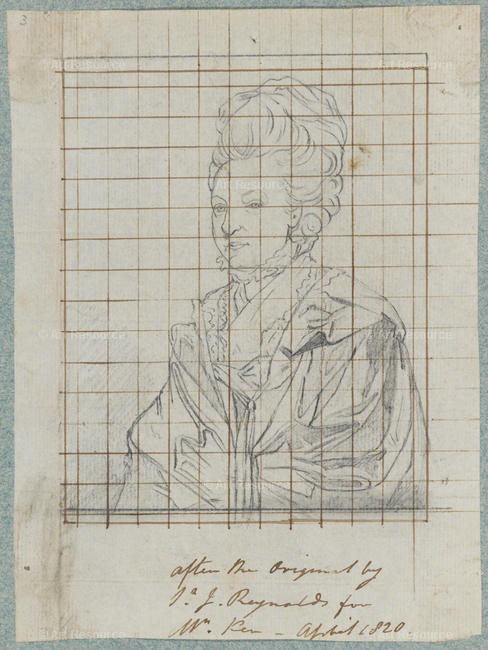 3
after the Original by
Sr. J. Reynolds for
Mr. Ker - April 1820
Art Resource